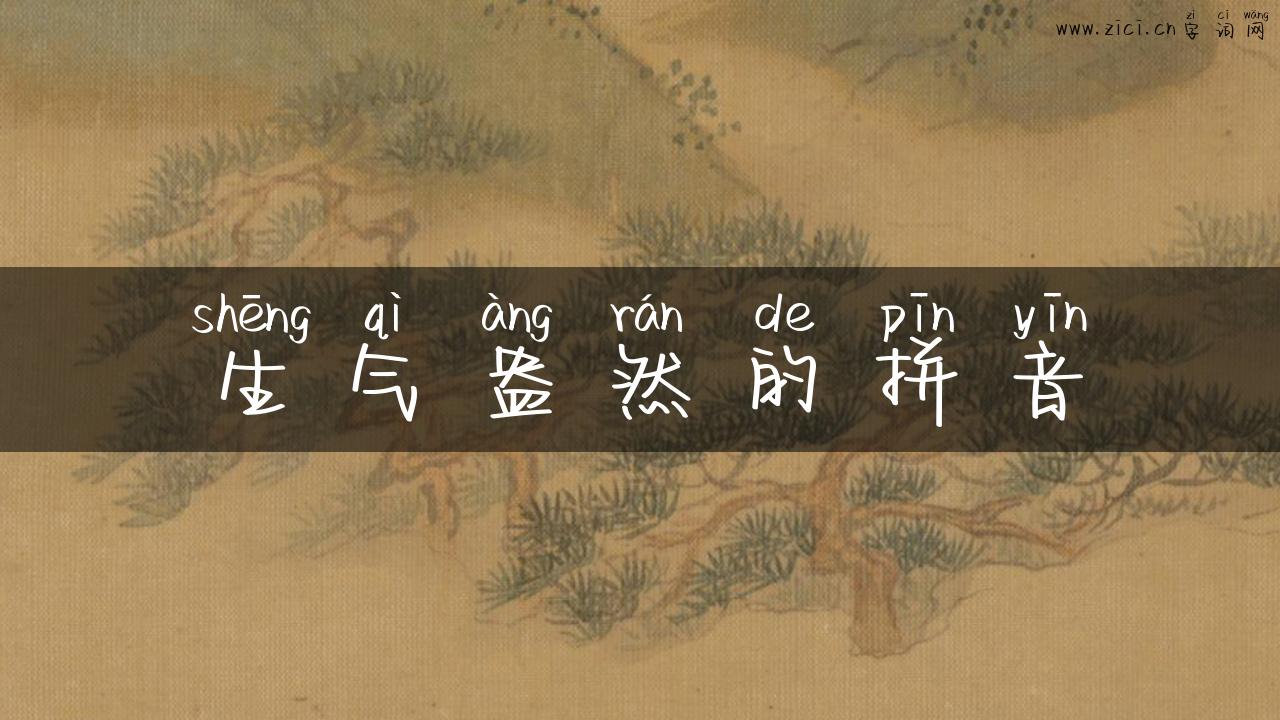 zì cí wǎng
www.zici.cn 字 词 网
shēng qì àng rán de pīn yīn
生 气 盎 然 的 拼 音